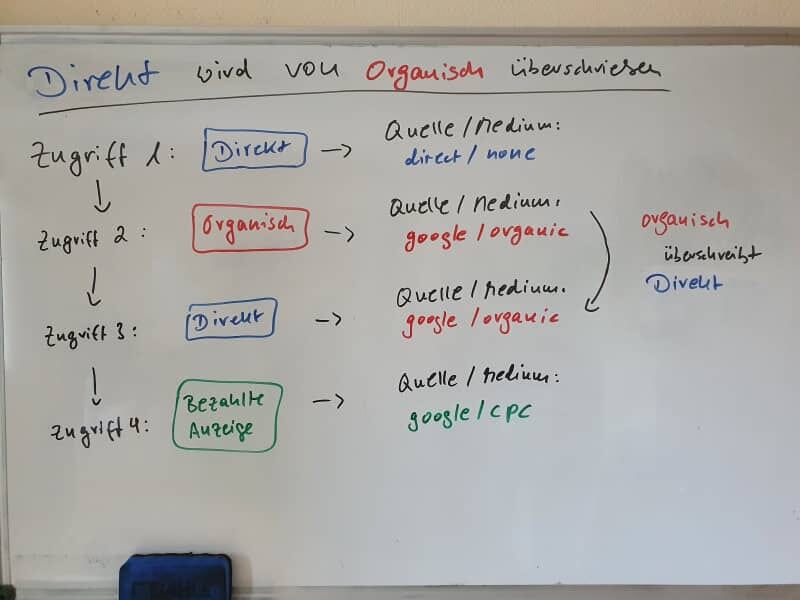 Direkt wird von Organisch überschrieben
Zugriff 1: Direkt → Quelle/Medium:
direct/none
Zugriff 2: Organisch → Quelle/Medium:
google/organic
Zugriff 3: Direkt → Quelle/Medium.
google/organic
organisch
überschreibt
Direkt
Zugriff 4: Bezahlte
Anzeige → Quelle/Medium:
google/CPC